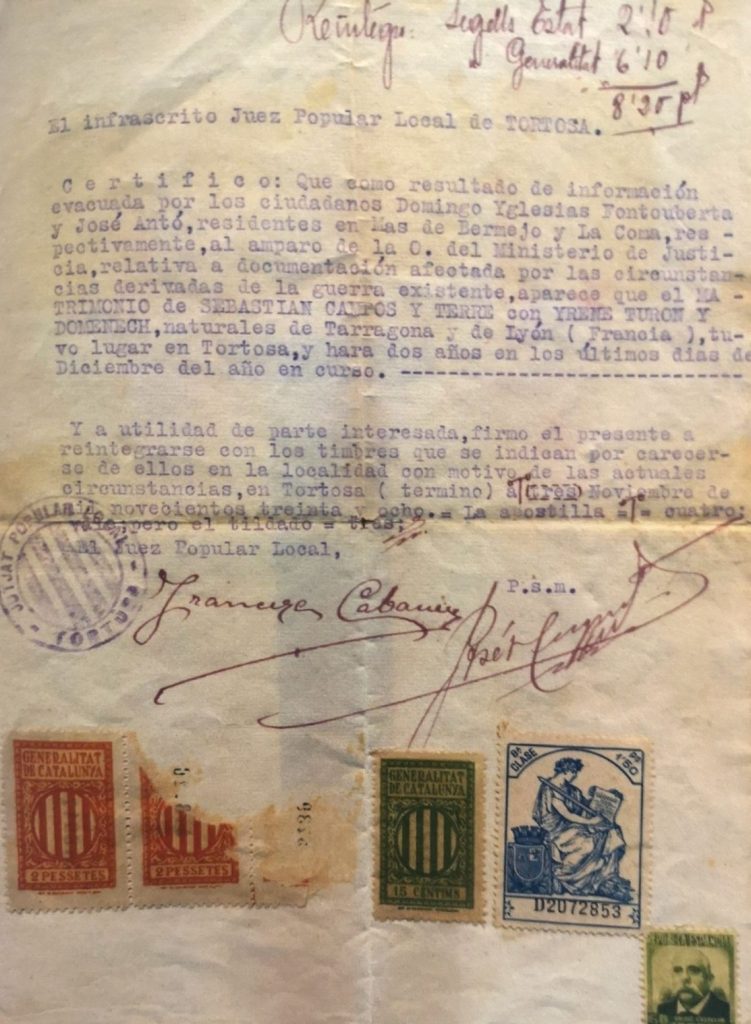 Reintegro: Segells Estat 2'10 P
" Generalitat 6'10
8'20 pP
El infrascrito Juez Popular Local de TORTOSA.
C e r t i f i c o: Que como resultado de información
evacuada por los ciudadanos Domingo Yglesias Fontcuberta
y José Antó,residentes en Mas de Bermejo y La Coma,res -
pectivamente,al amparo de la O. del Ministerio de Justi-
cia,relativa a documentación afectada por las circunstan-
cias derivadas de la guerra existente,aparece que el MA -
TRIMONIO de SEBASTIAN CAMPOS Y TERRE con YRENE TURON Y
DOMENECH,naturales de Tarragona y de Lyón ( Francia ),tu-
vo lugar en Tortosa,y hara dos años en los últimos dias de
Diciembre del año en curso. ----------------------------
Y a utilidad de parte interesada,firmo el presente a
reintegrarse con los timbres que se indican por carecer-
se de ellos en la localidad con motivo de las actuales
circunstancias,en Tortosa ( termino) a Noviembre de
mil novecientos treinta y ocho.= La apostilla =T= cuatro:
vale;pero el tildado = tres;
El Juez Popular Local,
P.s.m.
JUTJAT POPULAR LOCAL
- TORTOSA -
José
GENERALITAT
DE CATALUNYA
2 PESSETES
2 PESSETES
GENERALITAT
DE CATALUNYA
15 CENTIMS
8ª CLASE
1'50 PT
D2072853